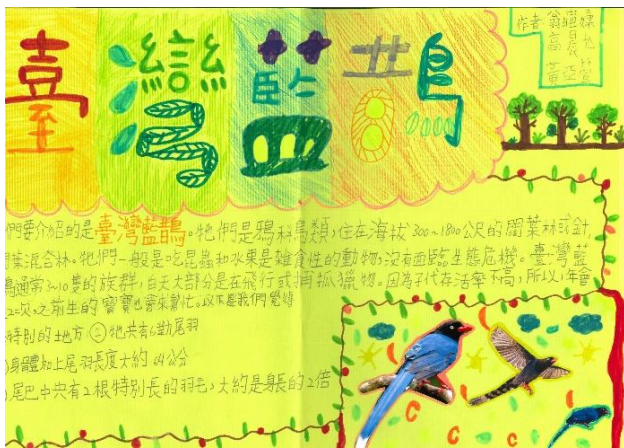 臺灣藍鵲
作者
們要介紹的是臺灣藍鵲。牠們是鴉科鳥類,住在海拔300~1800公尺的闊葉林或針
葉混合林。牠們一般是吃昆蟲和水果是雜食性的動物,沒有面臨生態危機。臺灣藍
鵲通常3~10隻的族群,白天大部分是在飛行或捕抓獵物。因為子代存活率不高,所以1年會
2次,之前生的寶寶也會來幫忙。以下是我們覺得
特別的地方:牠共有12勤尾羽
身體加上尾羽長度大約64公分
尾巴中共有2根特別長的羽毛,大約是身長的2倍